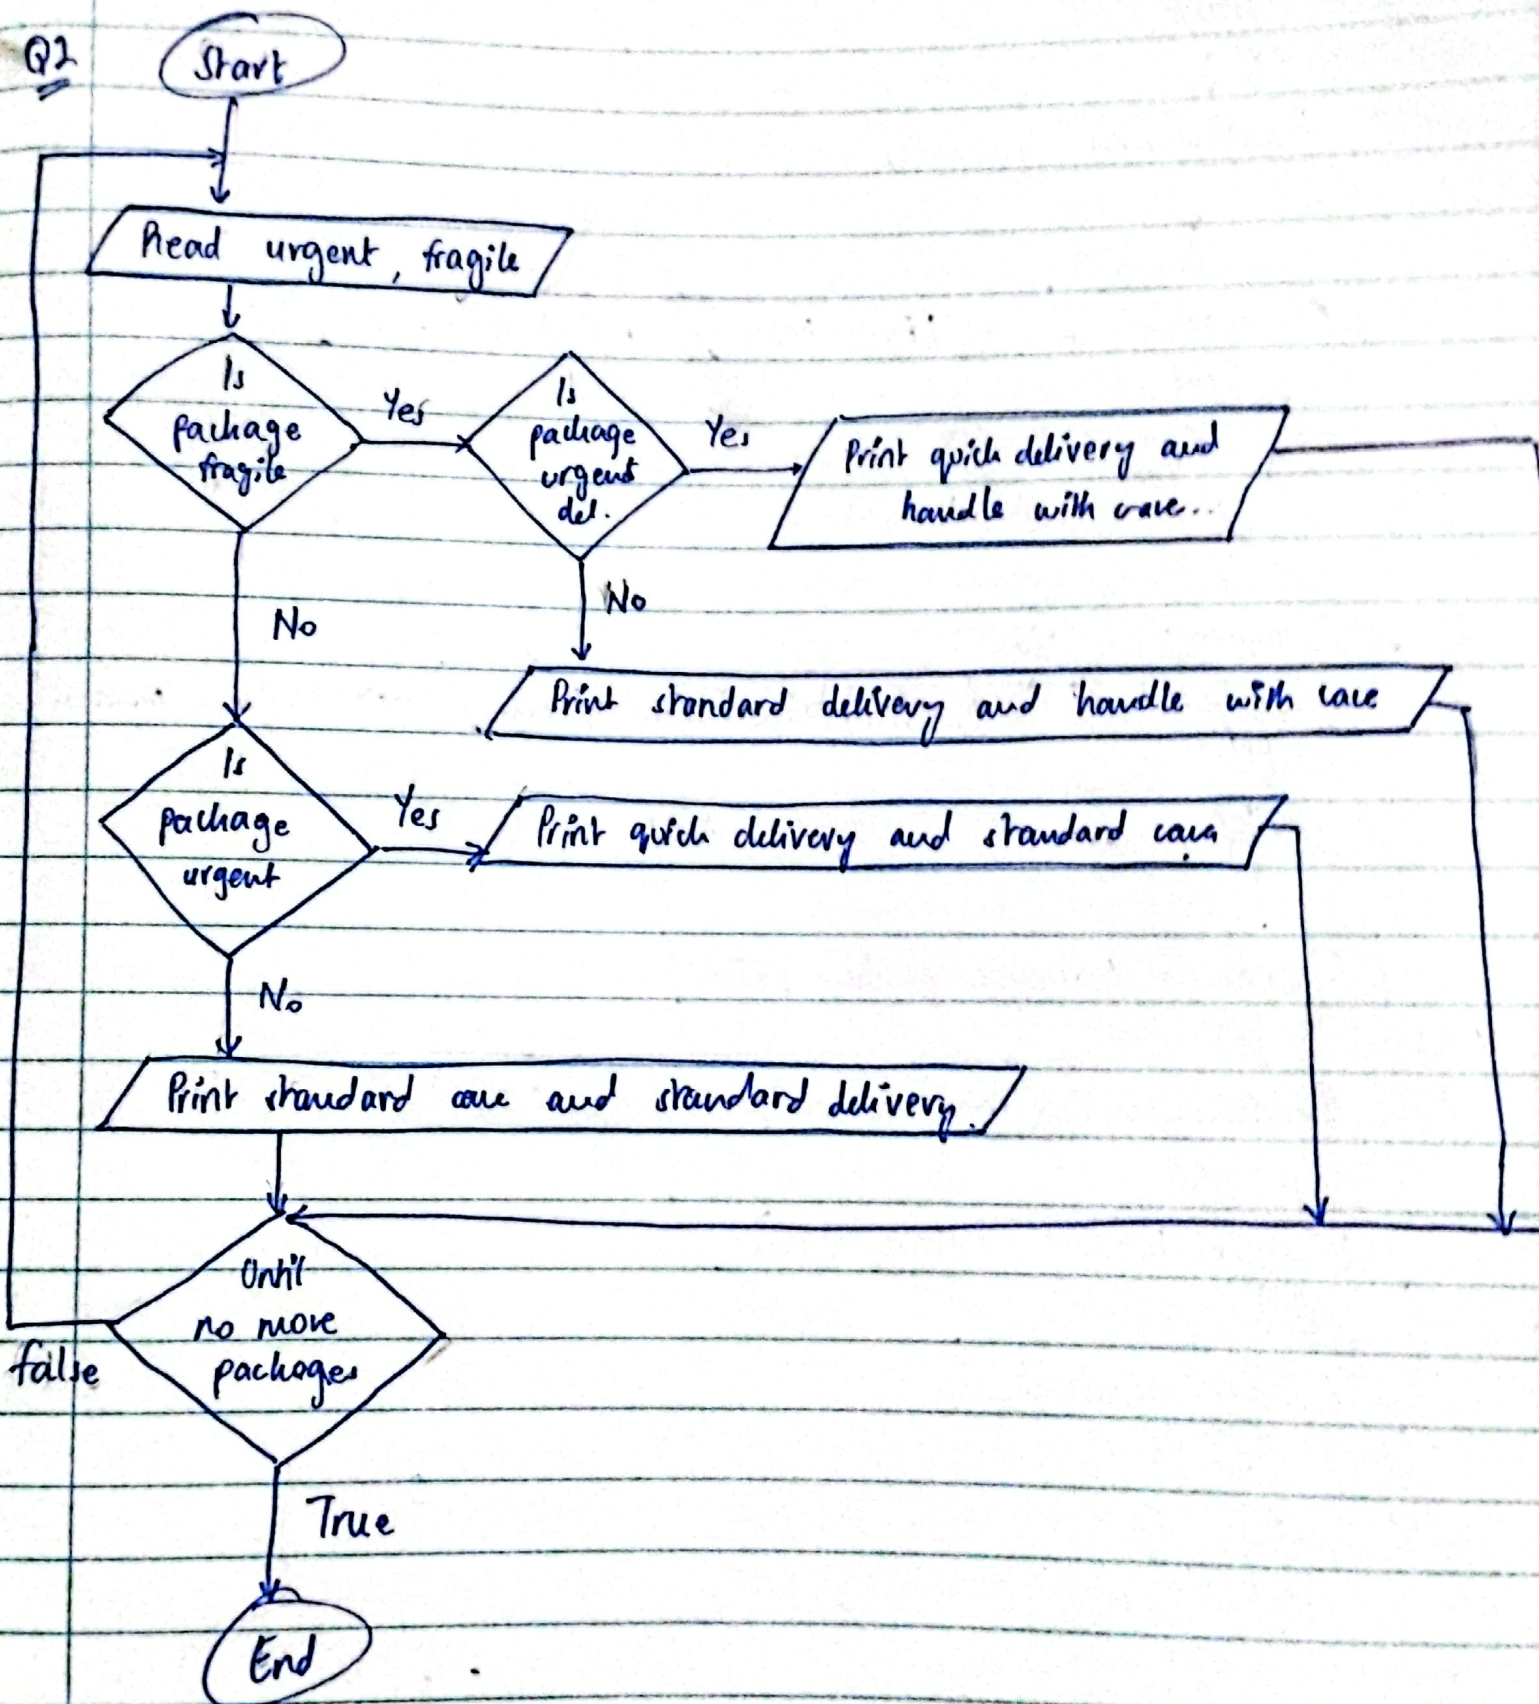 Q2
Start
Read urgent, fragile
Is
package
fragile
Yes
Is
package
urgent
del.
Yes
Print quick delivery and
handle with care..
No
No
Print standard delivery and handle with care
Is
package
urgent
Yes
Print quick delivery and standard care
No
Print standard care and standard delivery.
Until
no more
packages
false
True
End